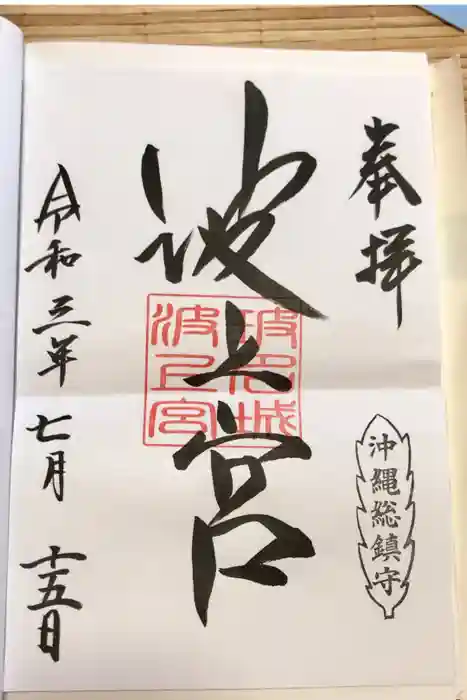 奉拝
沖縄総鎮守
波上宮
波之上
波上宮
令和三年七月十五日